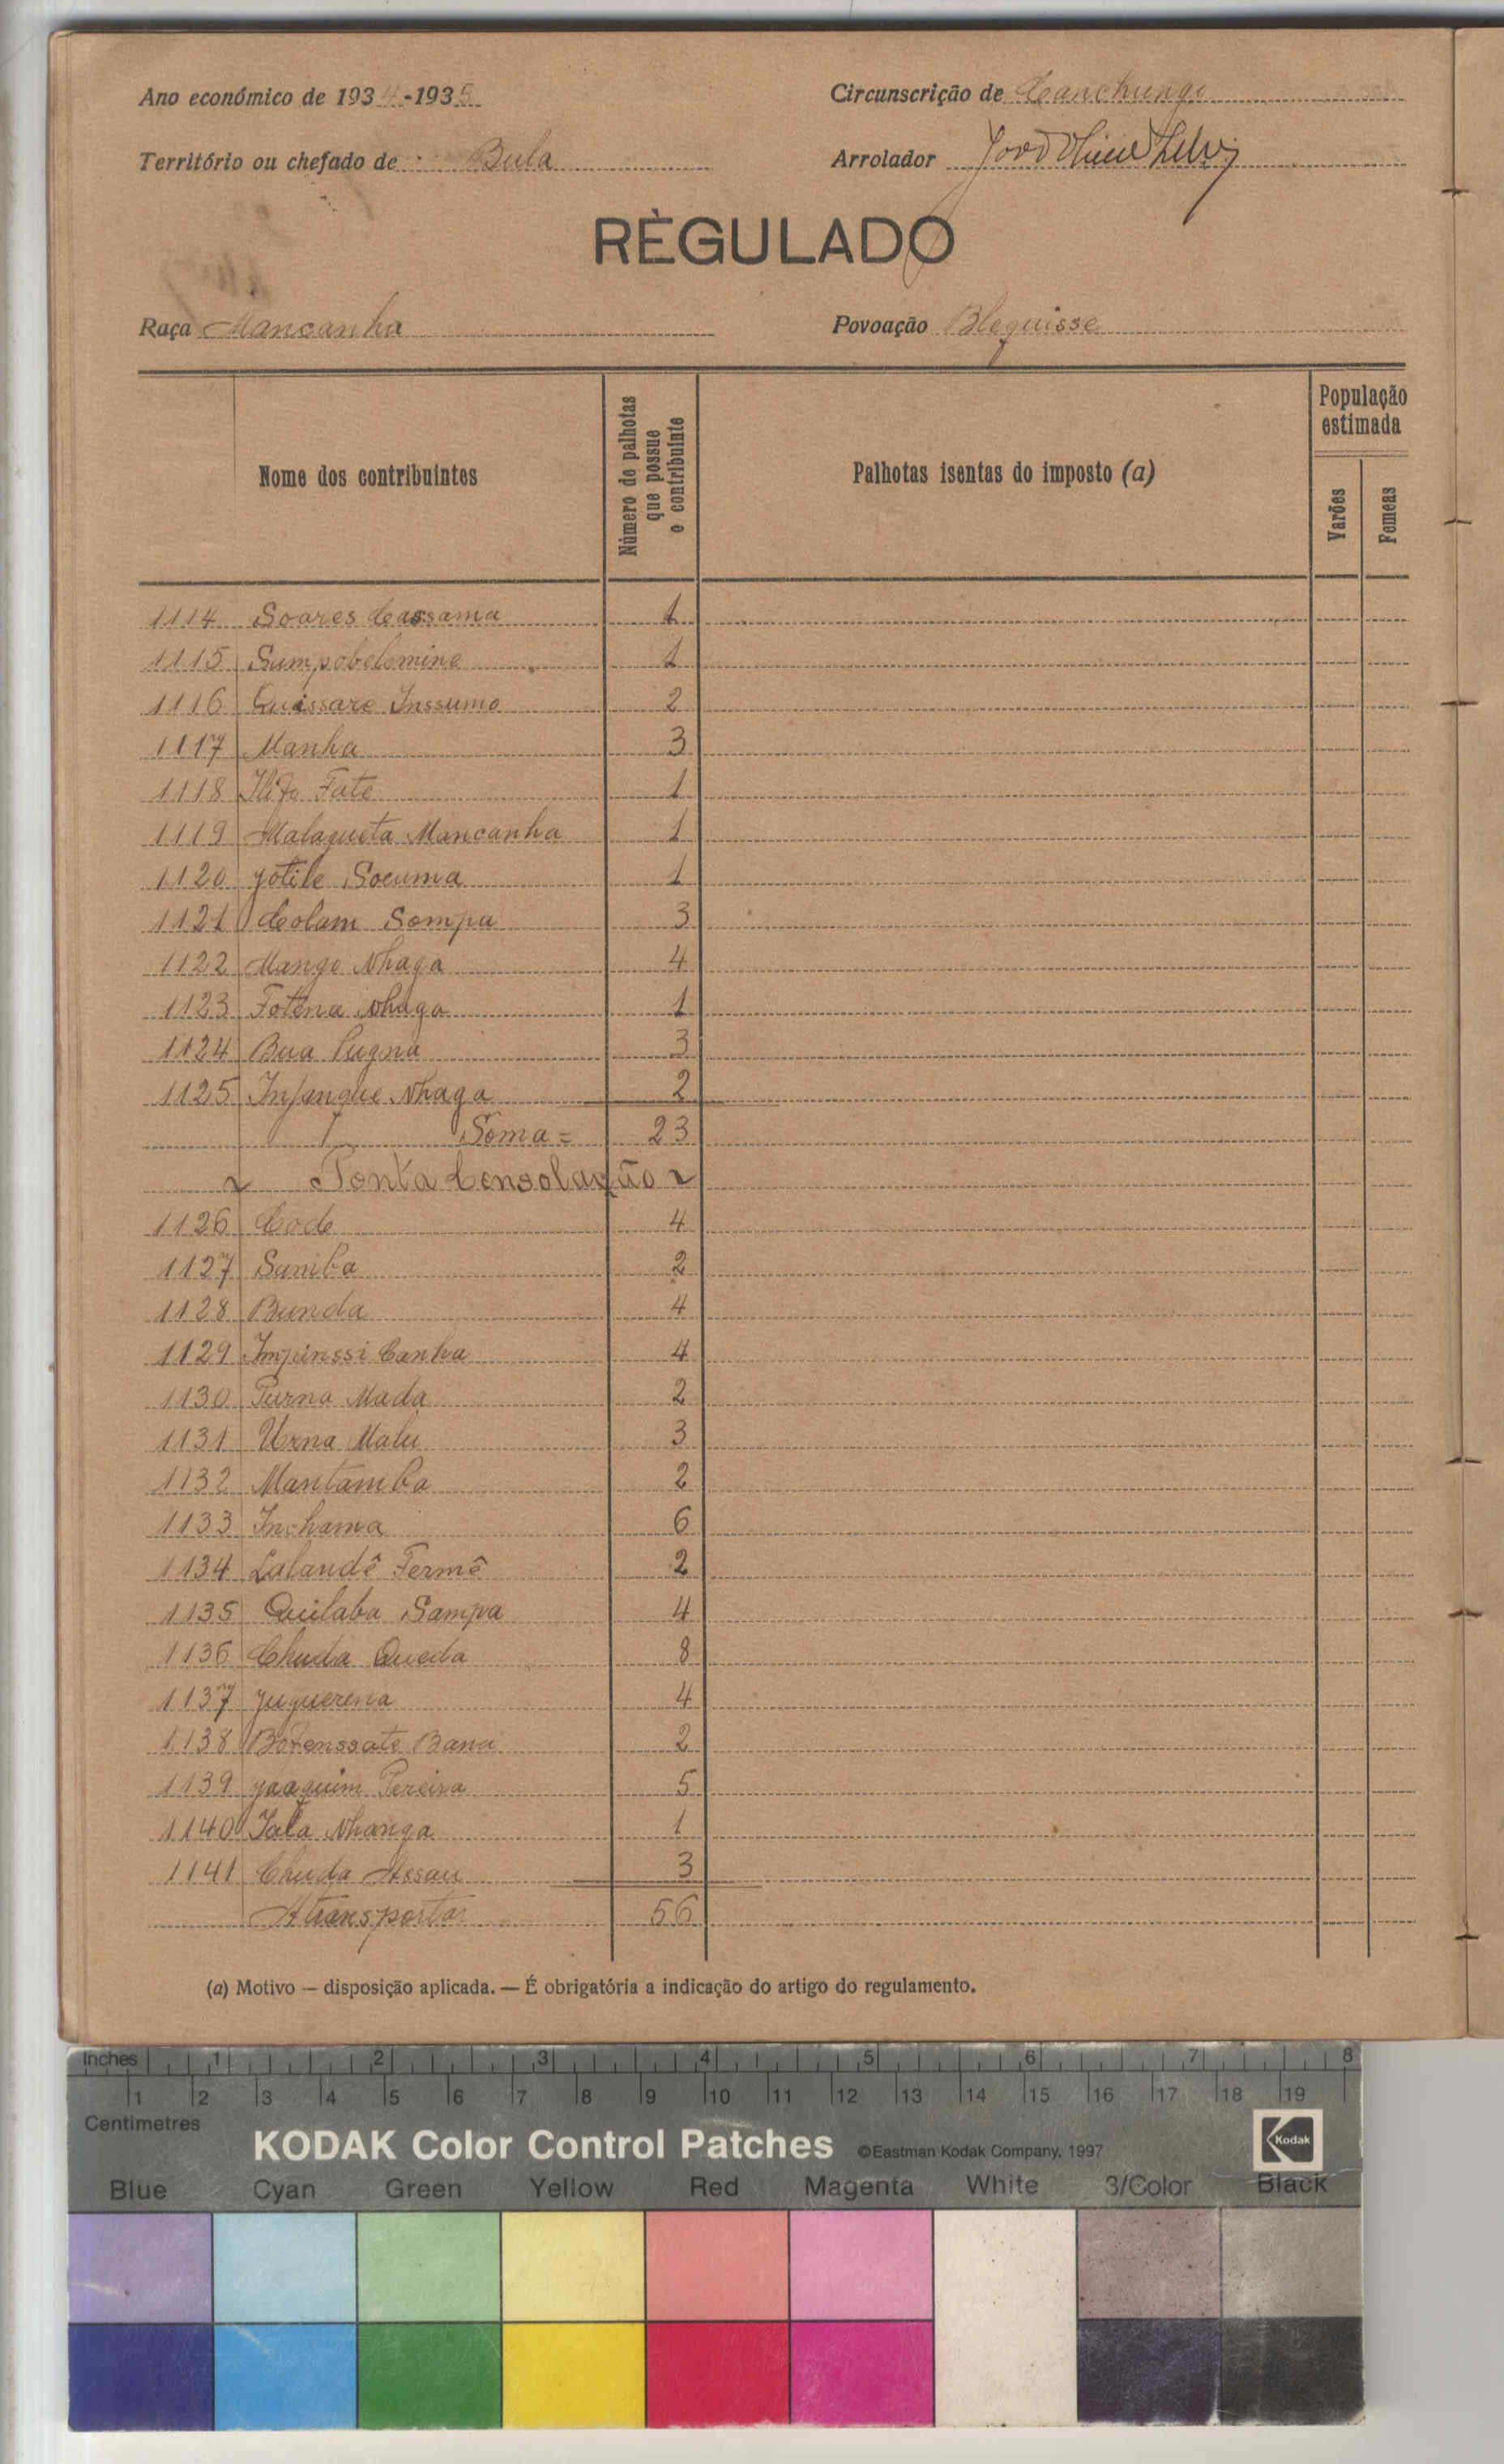 Ano económico de 1934-1935
Circunscrição de Canchungo
Território ou chefado de : Bula
Arrolador
RÈGULADO
Raça Mancanha
Povoação Blequisse
Nome dos contribuintes
Número de palhotas que possue o contribuinte
Palhotas isentas do imposto (a)
População estimada
Varões
Femeas
1114 Soares Cassama 1
1115 Sumpobelomine 1
1116 Quissare Inssumo 2
1117 Manha 3
1118 Fate 1
1119 Malagueta Mancanha 1
1120 Jotile Socuma 1
1121 Colam Sompu 3
1122 Mango Nhaga 4
1123 Fotena Nhaga 1
1124 Bua Pugna 3
1125 Infanque Nhaga 2
Soma = 23
Ponta Consolação
1126 Code 4
1127 Samba 2
1128 Bunda 4
1129 Impinssi Canha 4
1130 Purna Mada 2
1131 Urna Malu 3
1132 Mantamba 2
1133 Inchama 6
1134 Lalandê Fermê 2
1135 Quilaba Sampa 4
1136 Chuda Queba 8
1137 Juguerena 4
1138 Botenssate Bana 2
1139 Joaquim Pereira 5
1140 Iala Nhanga 1
1141 Chuda Assau 3
A transportar 56
(a) Motivo — disposição aplicada. — É obrigatória a indicação do artigo do regulamento.
Inches 1 2 3 4 5 6 7 8
1 2 3 4 5 6 7 8 9 10 11 12 13 14 15 16 17 18 19
Centimetres
KODAK Color Control Patches ©Eastman Kodak Company, 1997 Kodak
Blue Cyan Green Yellow Red Magenta White 3/Color Black